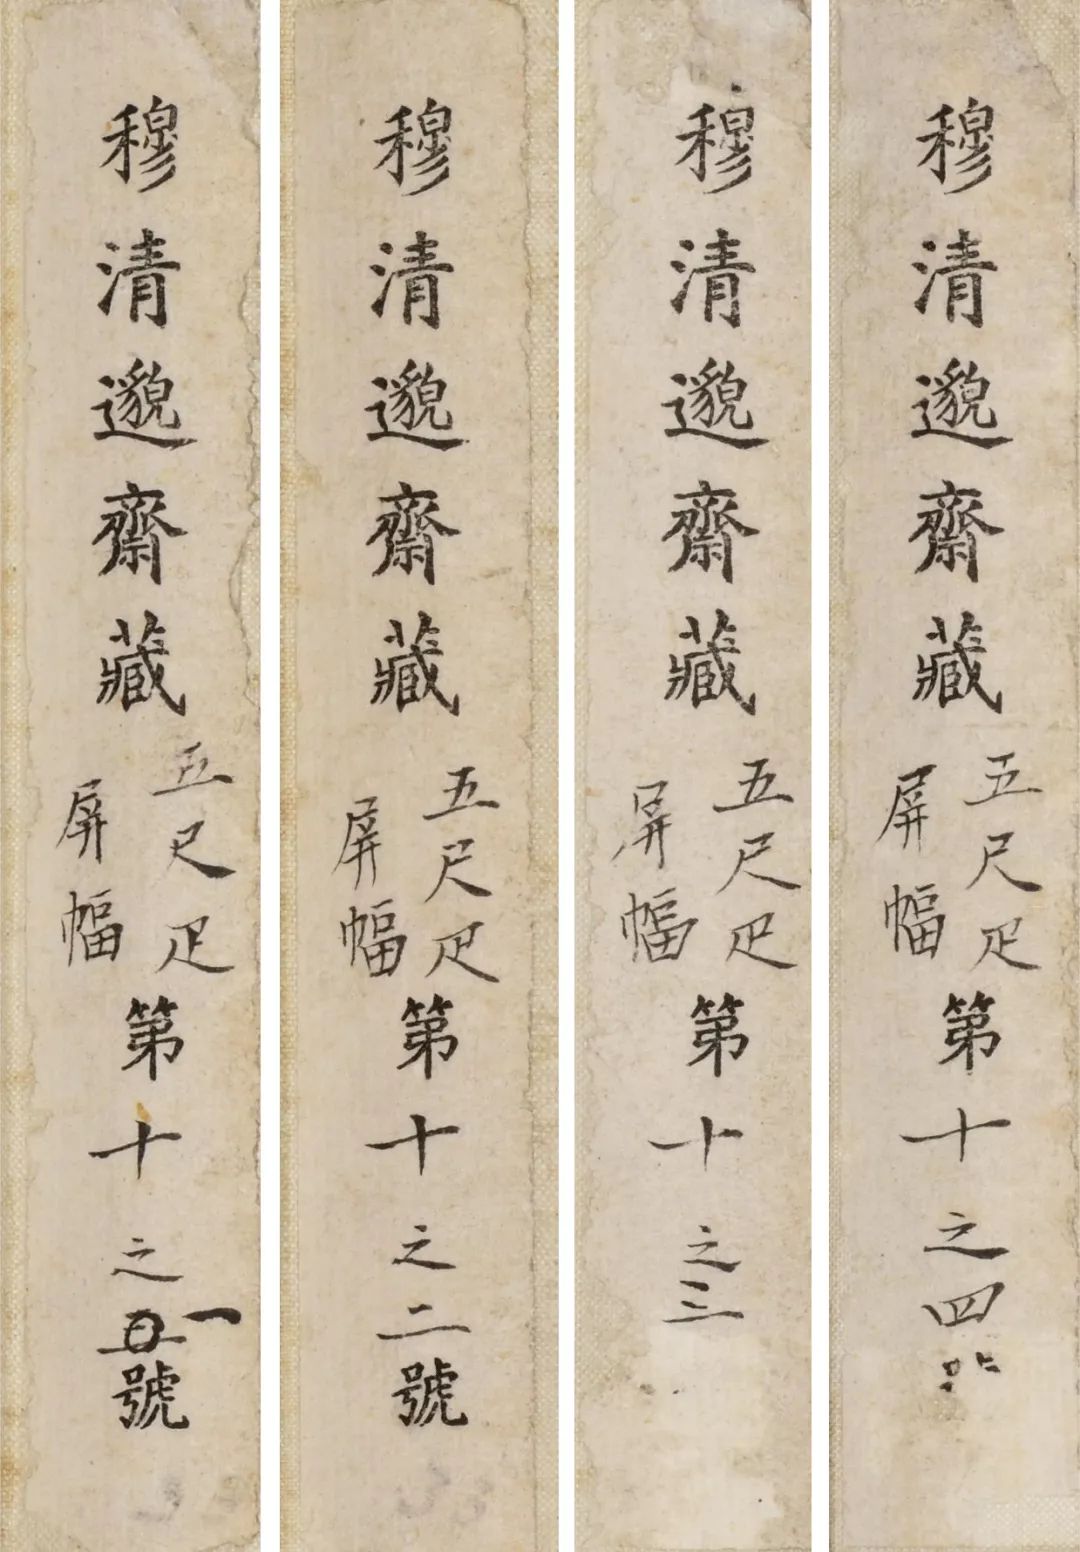 穆清邈齋藏
五尺疋
屏幅
第十之一號
穆清邈齋藏
五尺疋
屏幅
第十之二號
穆清邈齋藏
五尺疋
屏幅
第十之三
穆清邈齋藏
五尺疋
屏幅
第十之四